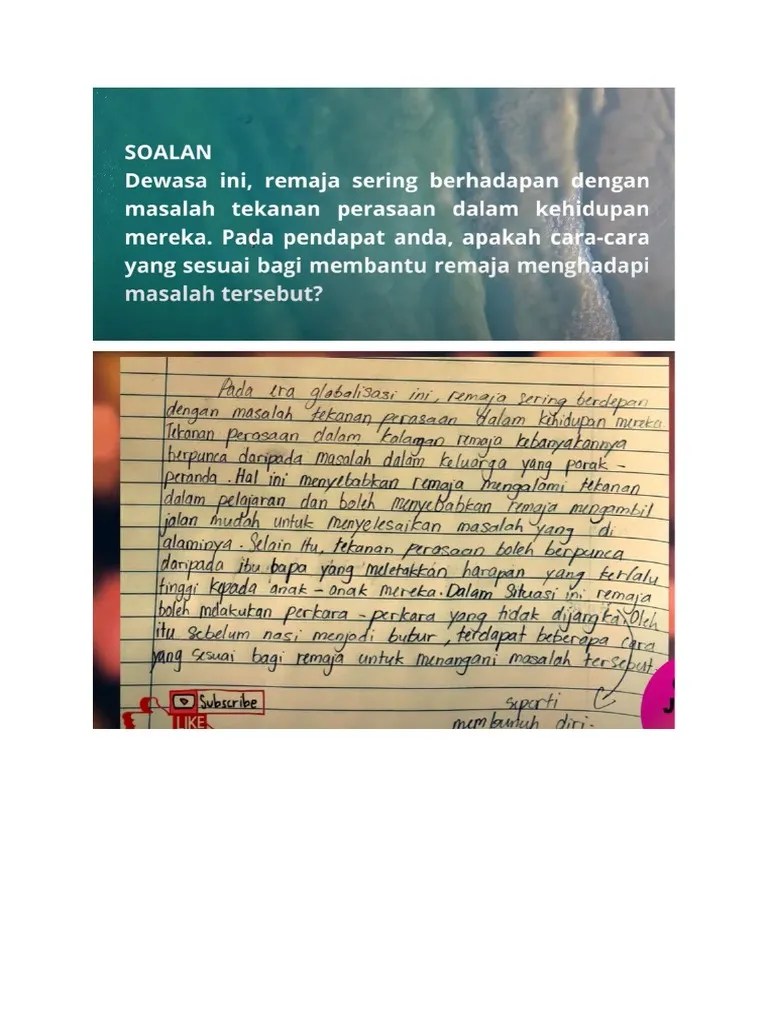 SOALAN
Dewasa ini, remaja sering berhadapan dengan
masalah tekanan perasaan dalam kehidupan
mereka. Pada pendapat anda, apakah cara-cara
yang sesuai bagi membantu remaja menghadapi
masalah tersebut?
Pada era globalisasi ini, remaja sering berdepan
dengan masalah tekanan perasaan dalam kehidupan mereka
Tekanan perasaan dalam kalangan remaja kebanyakannya
berpunca daripada masalah dalam keluarga yang porak -
peranda. Hal ini menyebabkan remaja mengalami tekanan
dalam pelajaran dan boleh menyebabkan remaja mengambil
jalan mudah untuk menyelesaikan masalah yang di
alaminya. Selain itu, tekanan perasaan boleh berpunca
daripada ibu bapa yang meletakkan harapan yang terlalu
tinggi kepada anak - anak mereka. Dalam situasi ini remaja
boleh melakukan perkara - perkara yang tidak dijangka. Oleh
itu sebelum nasi menjadi bubur, terdapat beberapa cara
yang sesuai bagi remaja untuk menangani masalah tersebut.
seperti
membunuh diri.
Subscribe
LIKE